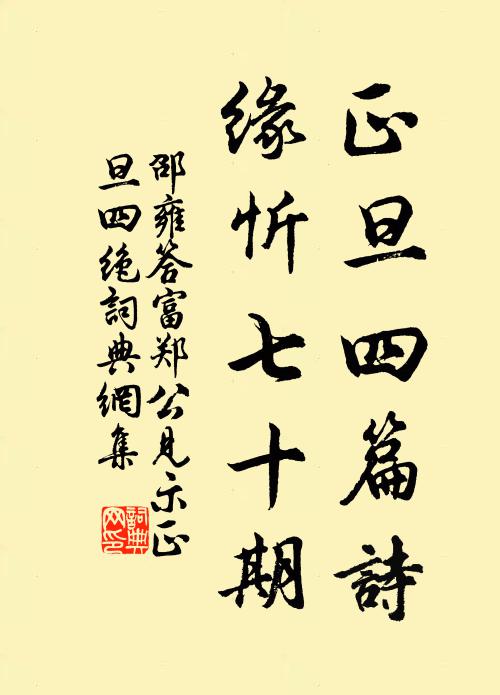 正旦四篇詩
緣忻七十期
邵雍答富郑公見示正
旦四绝詞典網集
詞典
网印